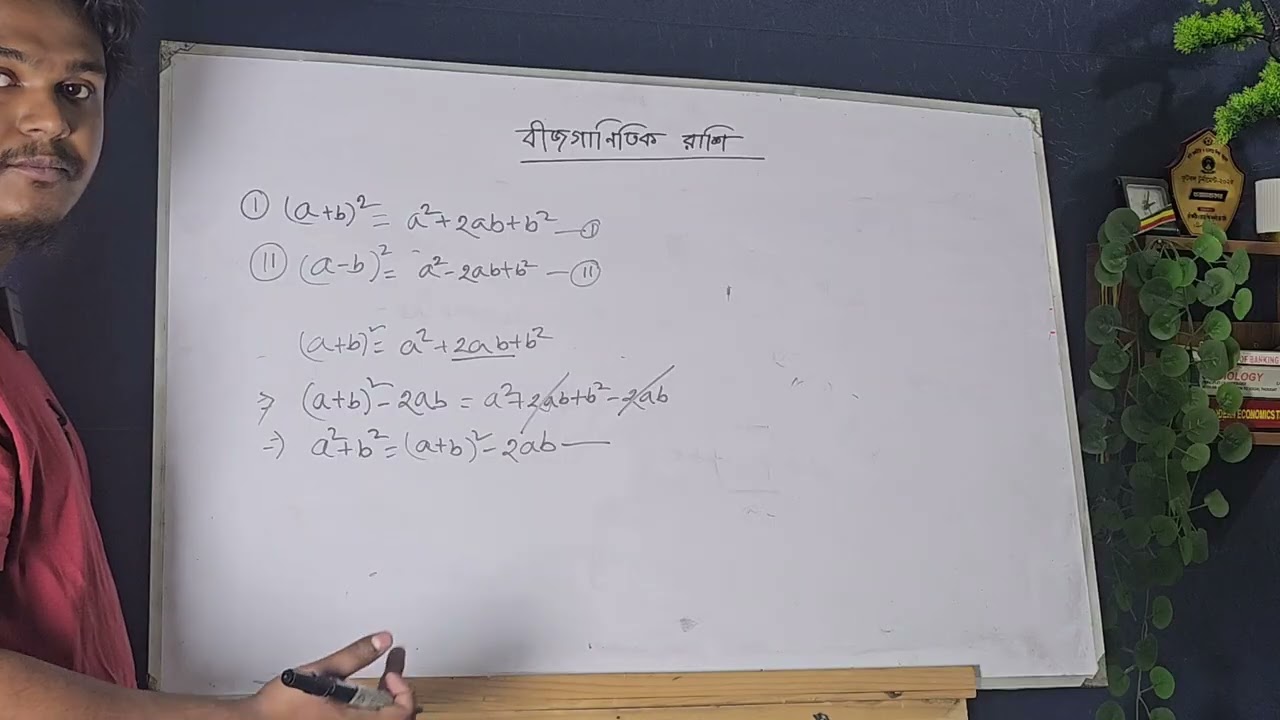 বীজগানিতিক রাশি
① (a+b)² = a²+2ab+b² —①
⑪ (a-b)² = a²-2ab+b² —⑪
(a+b)² = a²+2ab+b²
⇒ (a+b)²-2ab = a²+2ab+b²-2ab
⇒ a²+b² = (a+b)²-2ab —
OF BANKING
OLOGY
DERN ECONOMICS